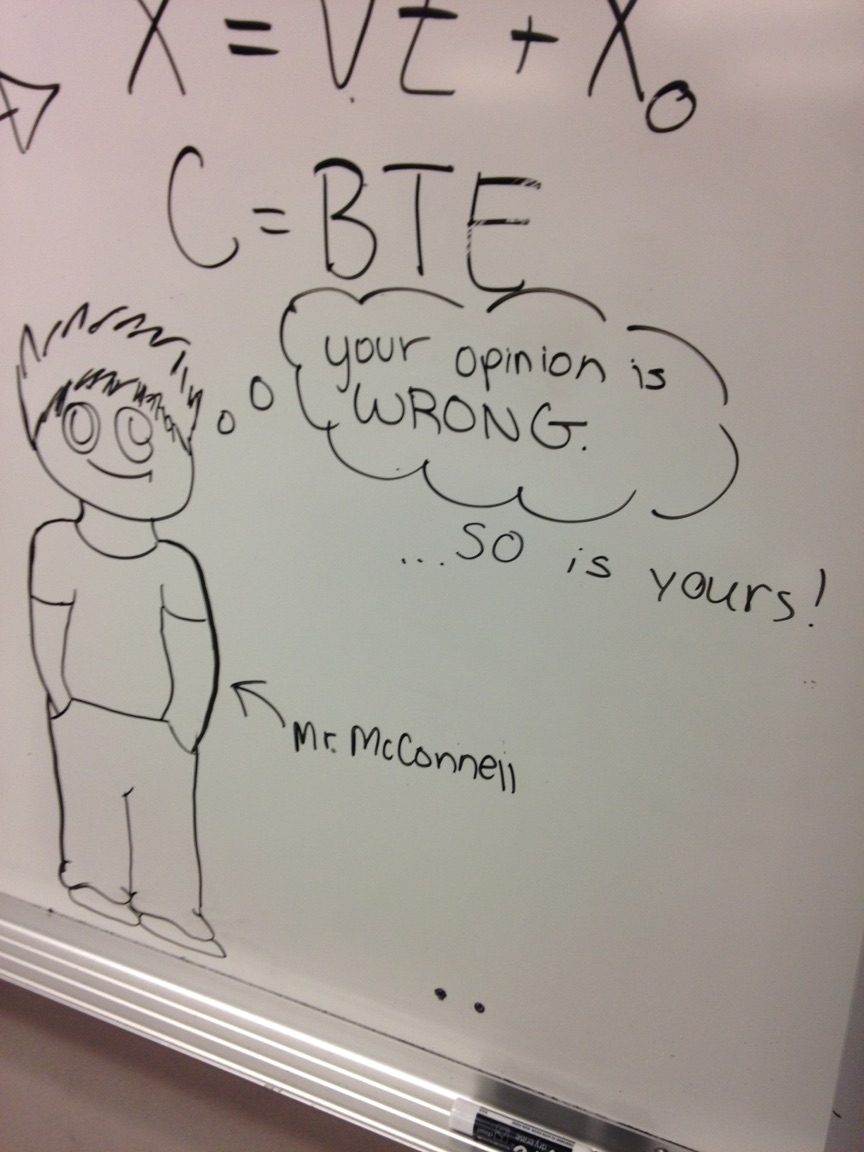 X = Vt + X₀
C = BTE
your opinion is
WRONG.
...so is yours!
Mr. McConnell